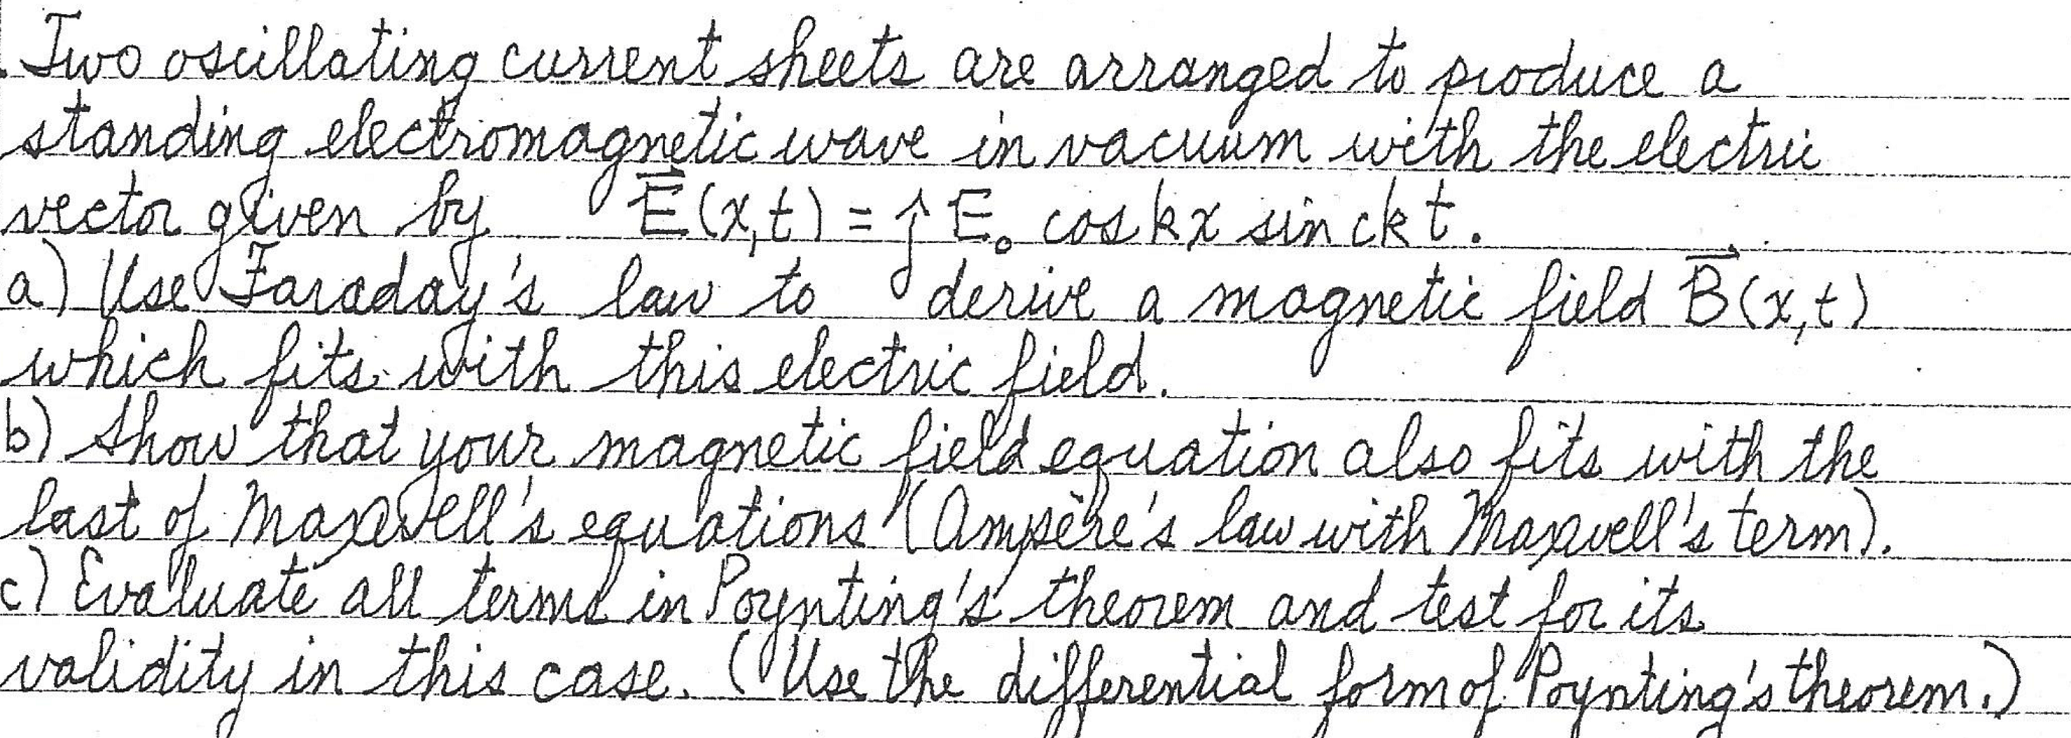 Two oscillating current sheets are arranged to produce a
standing electromagnetic wave in vacuum with the electric
vector given by E⃗(x,t) = ĵ E₀ cos kx sin ckt.
a) Use Faraday's law to derive a magnetic field B⃗(x,t)
which fits with this electric field.
b) Show that your magnetic field equation also fits with the
last of Maxwell's equations (Ampère's law with Maxwell's term).
c) Evaluate all terms in Poynting's theorem and test for its
validity in this case. (Use the differential form of Poynting's theorem.)